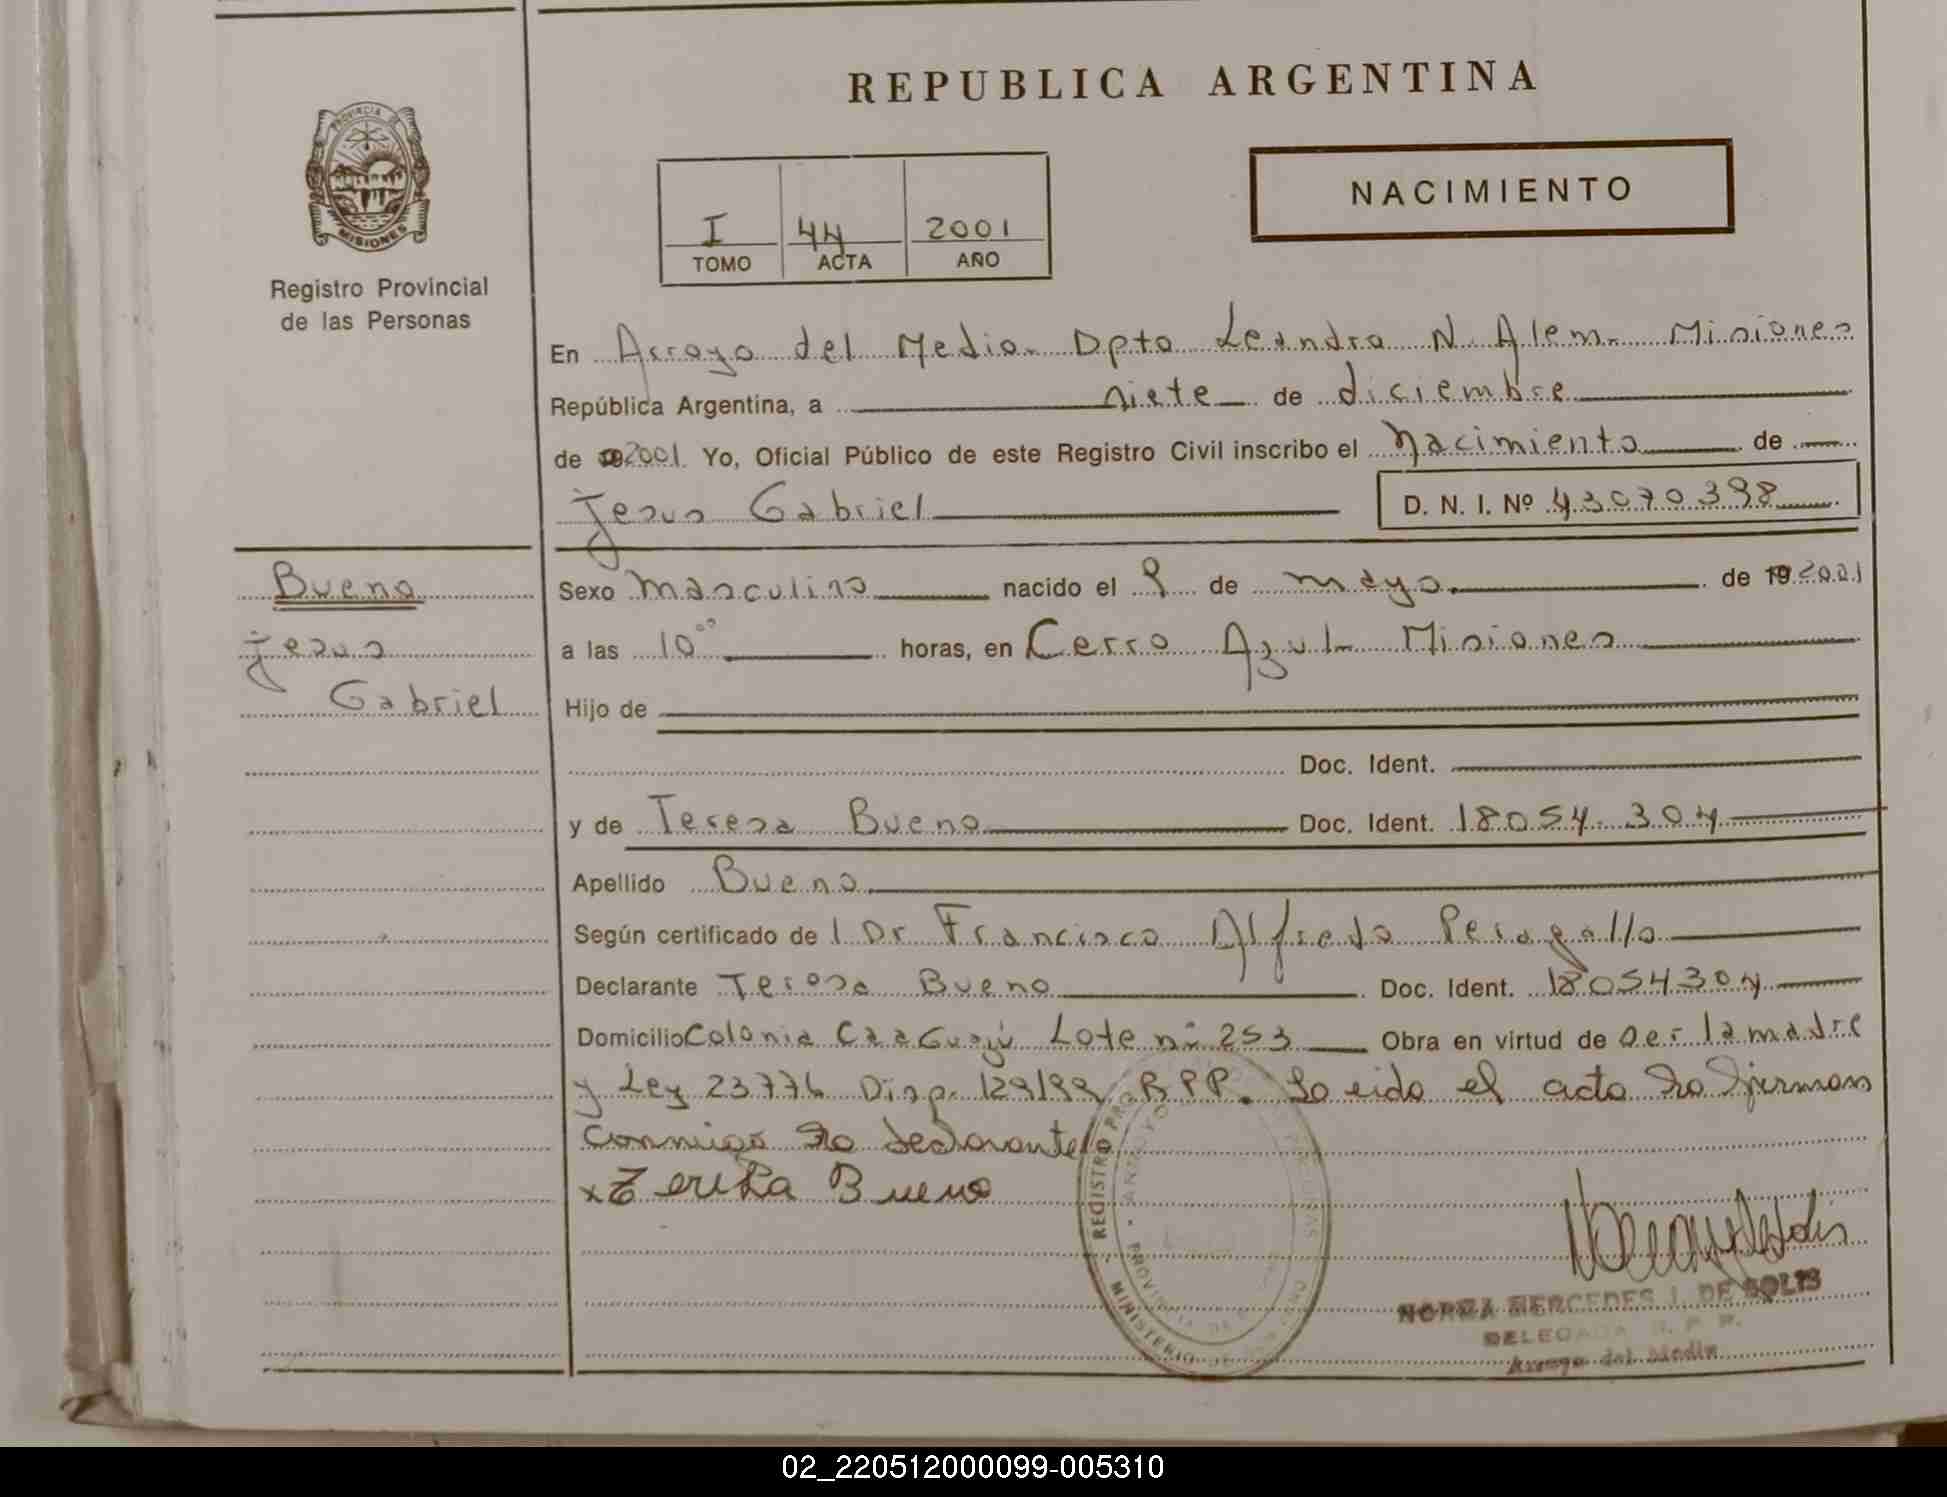 REPUBLICA ARGENTINA
PROVINCIA DE
MISIONES
Registro Provincial
de las Personas
I 44 2001
TOMO ACTA AÑO
NACIMIENTO
En Arroyo del Medio. Dpto Leandro N. Alem. Misiones
República Argentina, a siete de diciembre
de 2001. Yo, Oficial Público de este Registro Civil inscribo el Nacimiento de
Jesus Gabriel D. N. I. Nº 43070398
Bueno
Jesus
Gabriel
Sexo Masculino nacido el 9 de mayo de 19 2001
a las 10°° horas, en Cerro Azul- Misiones
Hijo de
Doc. Ident.
y de Teresa Bueno Doc. Ident. 18054.304
Apellido Bueno
Según certificado de l Dr Francisco Alfredo Peragallo
Declarante Teresa Bueno Doc. Ident. 18054304
Domicilio Colonia CaaGuazú Lote nº 253 Obra en virtud de ser la madre
y Ley 23776 Disp. 129/99 RPP. Leido el acta la firman
conmigo la declarante
x Bueno
REGISTRO
MINISTERIO DE
PROVINCIA DE
NORMA MERCEDES J. DE SOLIS
DELEGADA R. P. P.
Arroyo del Medio
02_220512000099-005310